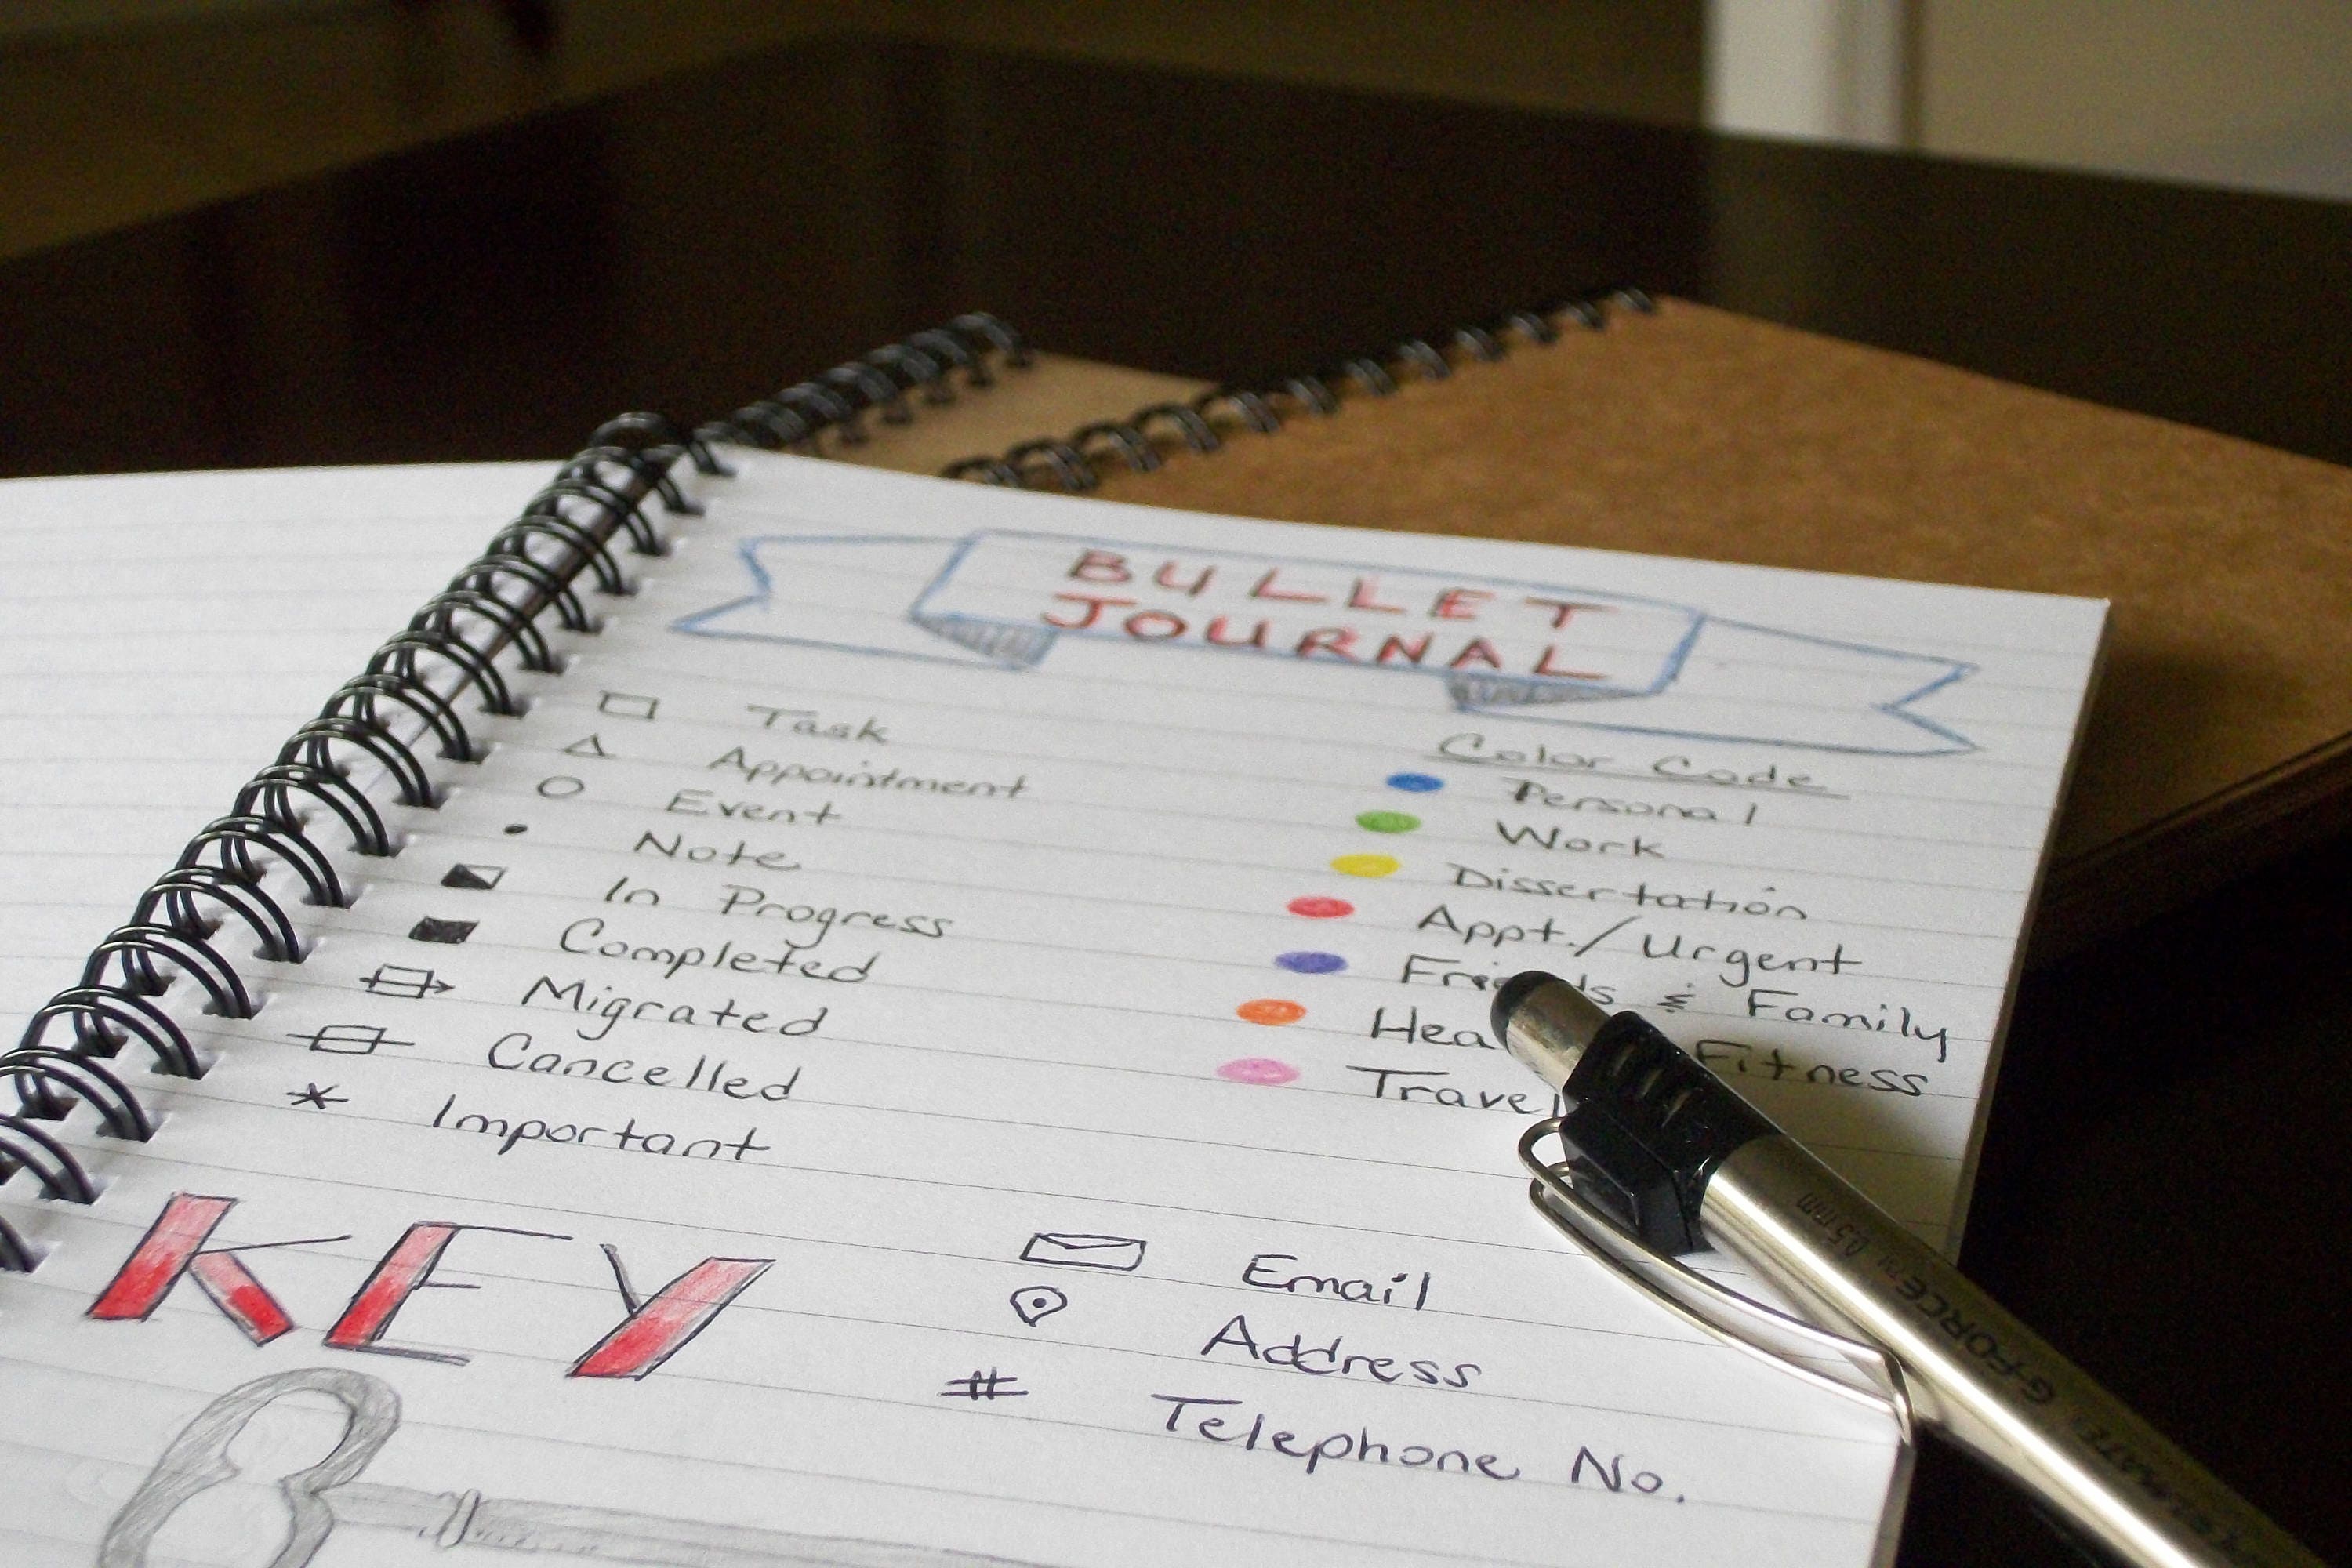 BULLET
JOURNAL
Task
Appointment
Event
Note
In Progress
Completed
Migrated
Cancelled
* Important
Color Code
Personal
Work
Dissertation
Appt./Urgent
Friends & Family
Fitness
Travel
KEY
Email
Address
# Telephone No.
G-FORCE™ 0.5 mm